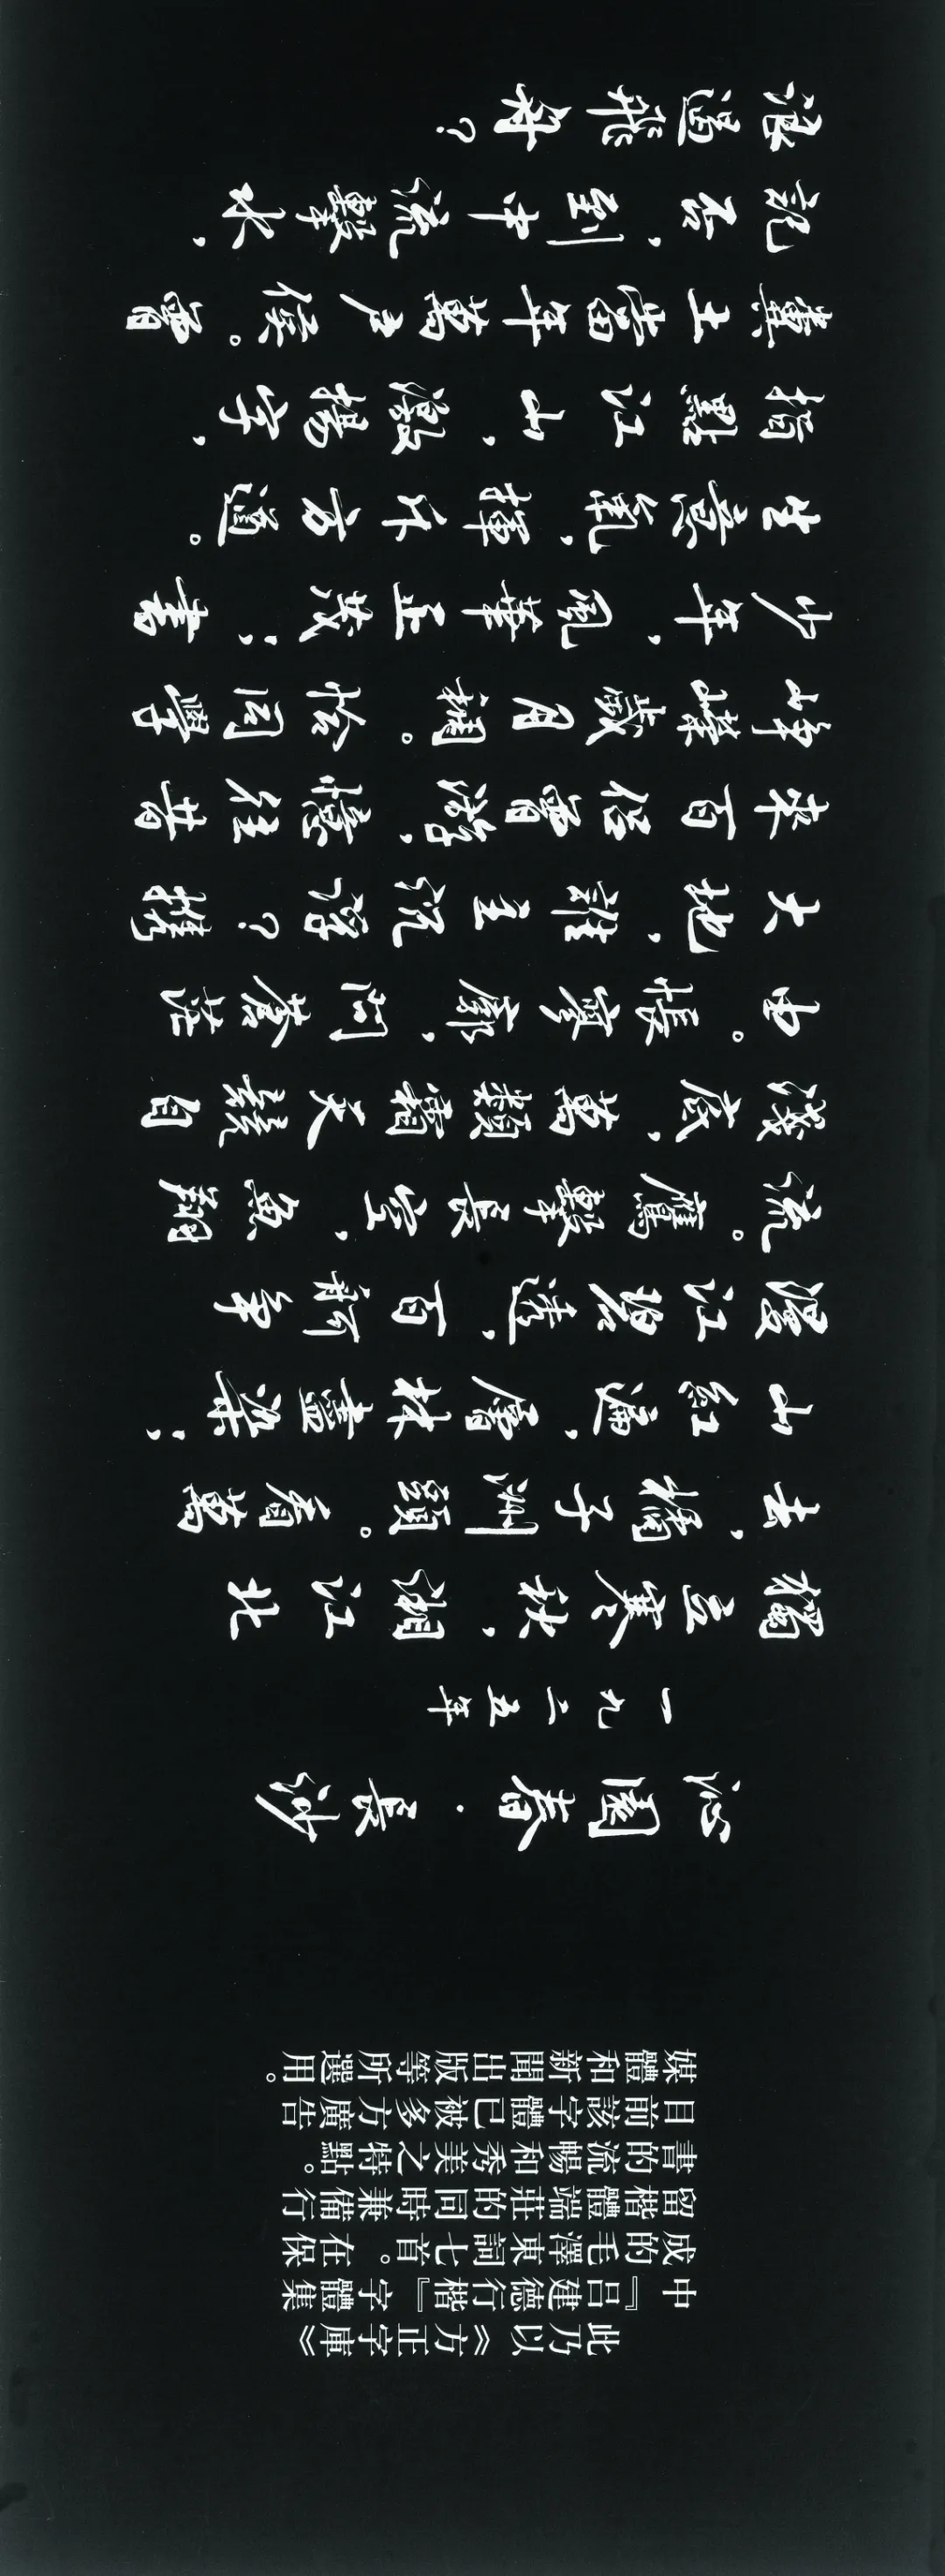 此乃以《方正字庫》
中『吕建德行楷』字體集
成的毛澤東詞七首。在保
留楷體端莊的同時兼備行
書的流暢和秀美之特點。
目前該字體已被多方廣告
媒體和新聞出版等所選用。
沁園春·長沙
一九二五年
獨立寒秋，湘江北
去，橘子洲頭。看萬
山紅遍，層林盡染；
漫江碧透，百舸爭
流。鷹擊長空，魚翔
淺底，萬類霜天競自
由。悵寥廓，問蒼茫
大地，誰主沉浮？攜
來百侣曾游，憶往昔
崢嶸歲月稠。恰同學
少年，風華正茂；書
生意氣，揮斥方遒。
指點江山，激揚字，
糞土當年萬户侯。曾
記否，到中流擊水，
浪遏飛舟？